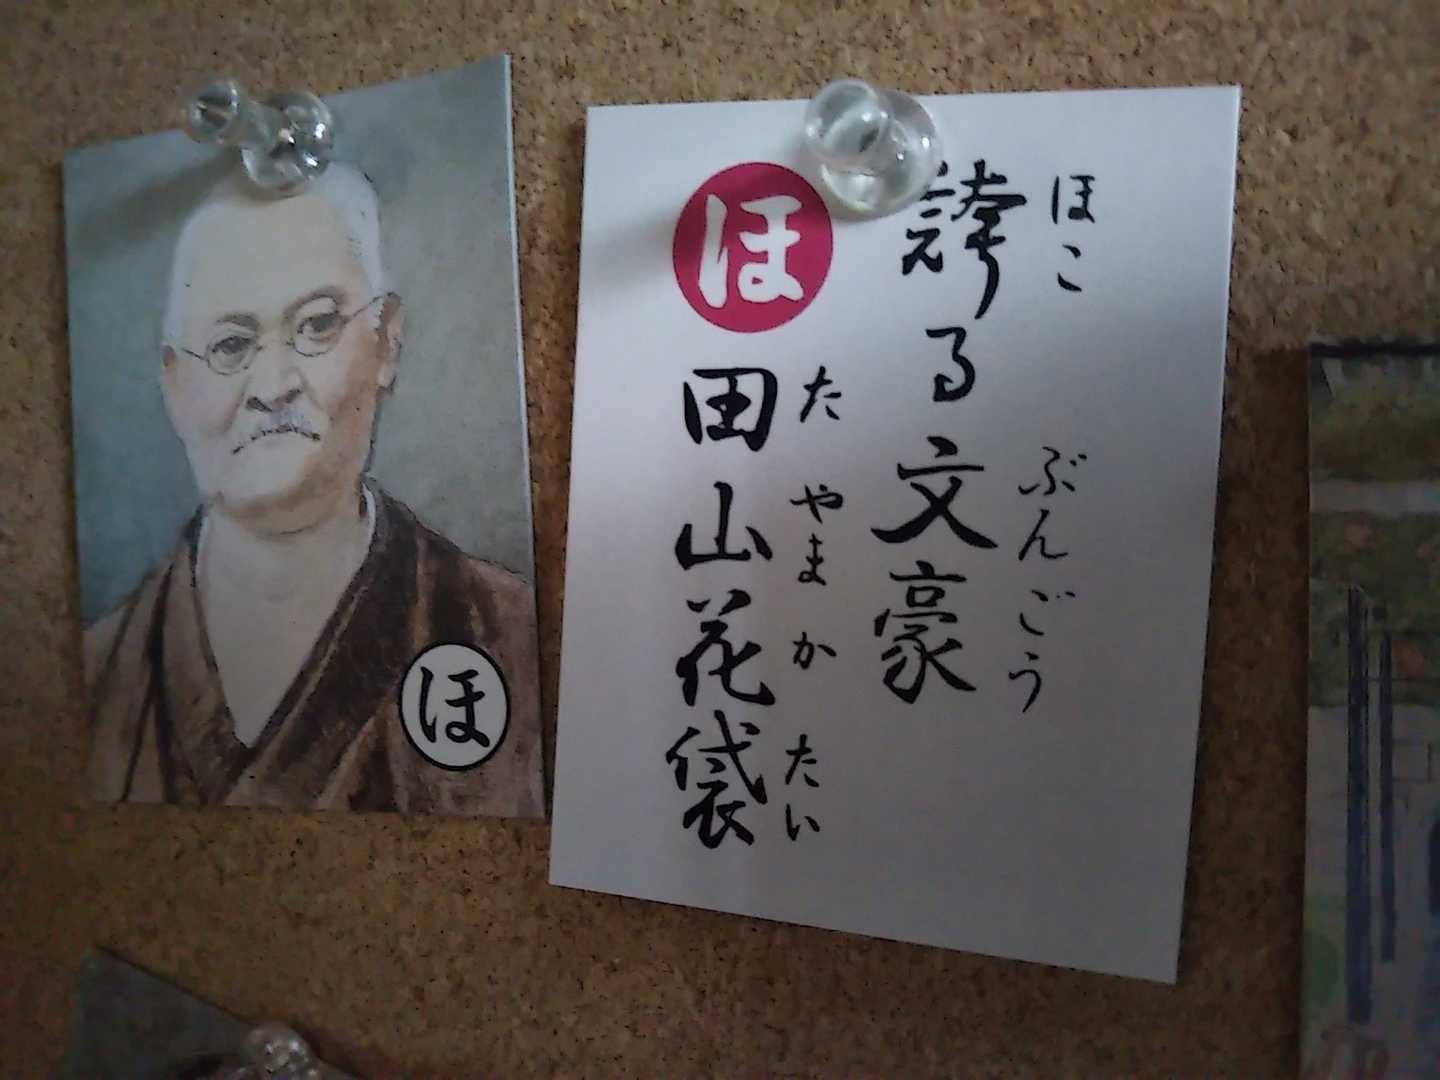 ほ
ほこ
誇る文豪
ぶんごう
ほ
田山花袋
たやまかたい